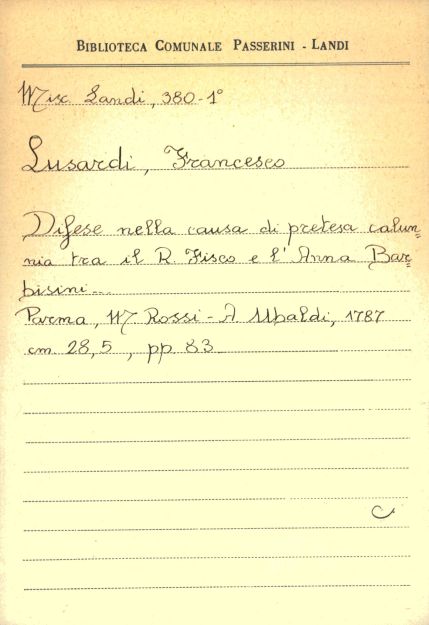 BIBLIOTECA COMUNALE PASSERINI - LANDI
Misc. Landi, 380-1°
Lusardi, Francesco
Difese nella causa di pretesa calun=
nia tra il R. Fisco e l'Anna Bar=
bisini...
Parma, M Rossi - A Ubaldi, 1787
cm. 28,5, pp 83
C